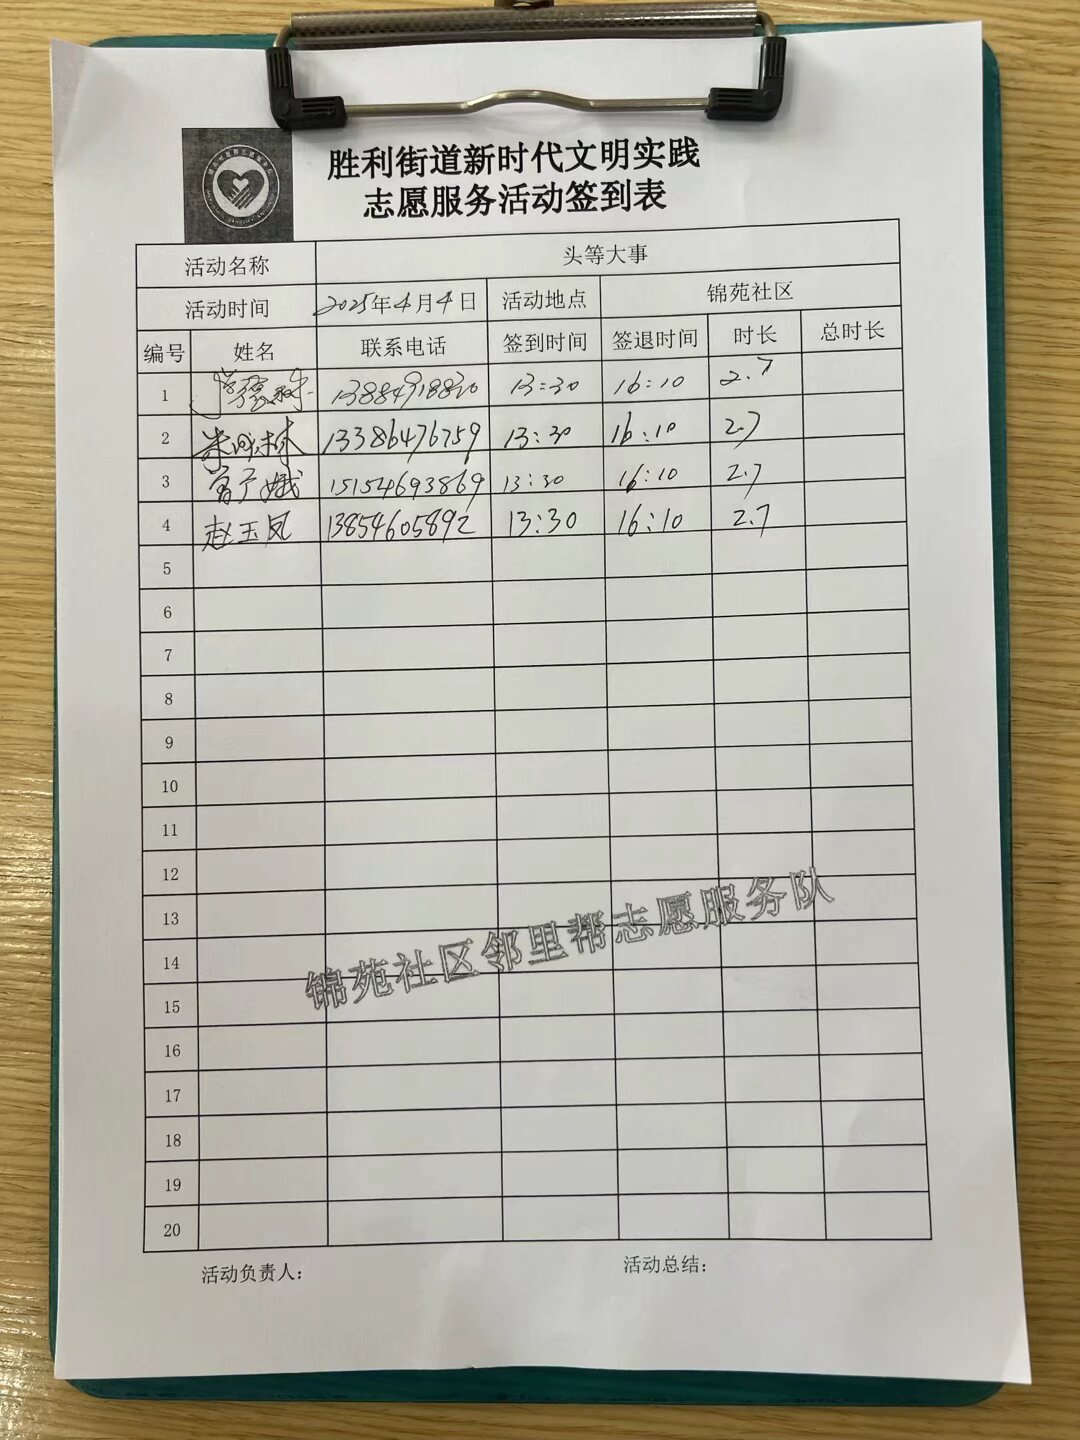 胜利街道新时代文明实践
志愿服务活动签到表
活动名称 头等大事
活动时间 2025年4月4日 活动地点 锦苑社区
编号 姓名 联系电话 签到时间 签退时间 时长 总时长
1 13884918820 13:30 16:10 2.7
2 13386476759 13:30 16:10 2.7
3 15154693869 13:30 16:10 2.7
4 赵玉凤 13854605892 13:30 16:10 2.7
5
6
7
8
9
10
11
12
13
14
15
16
17
18
19
20
锦苑社区邻里帮志愿服务队
活动负责人： 活动总结：